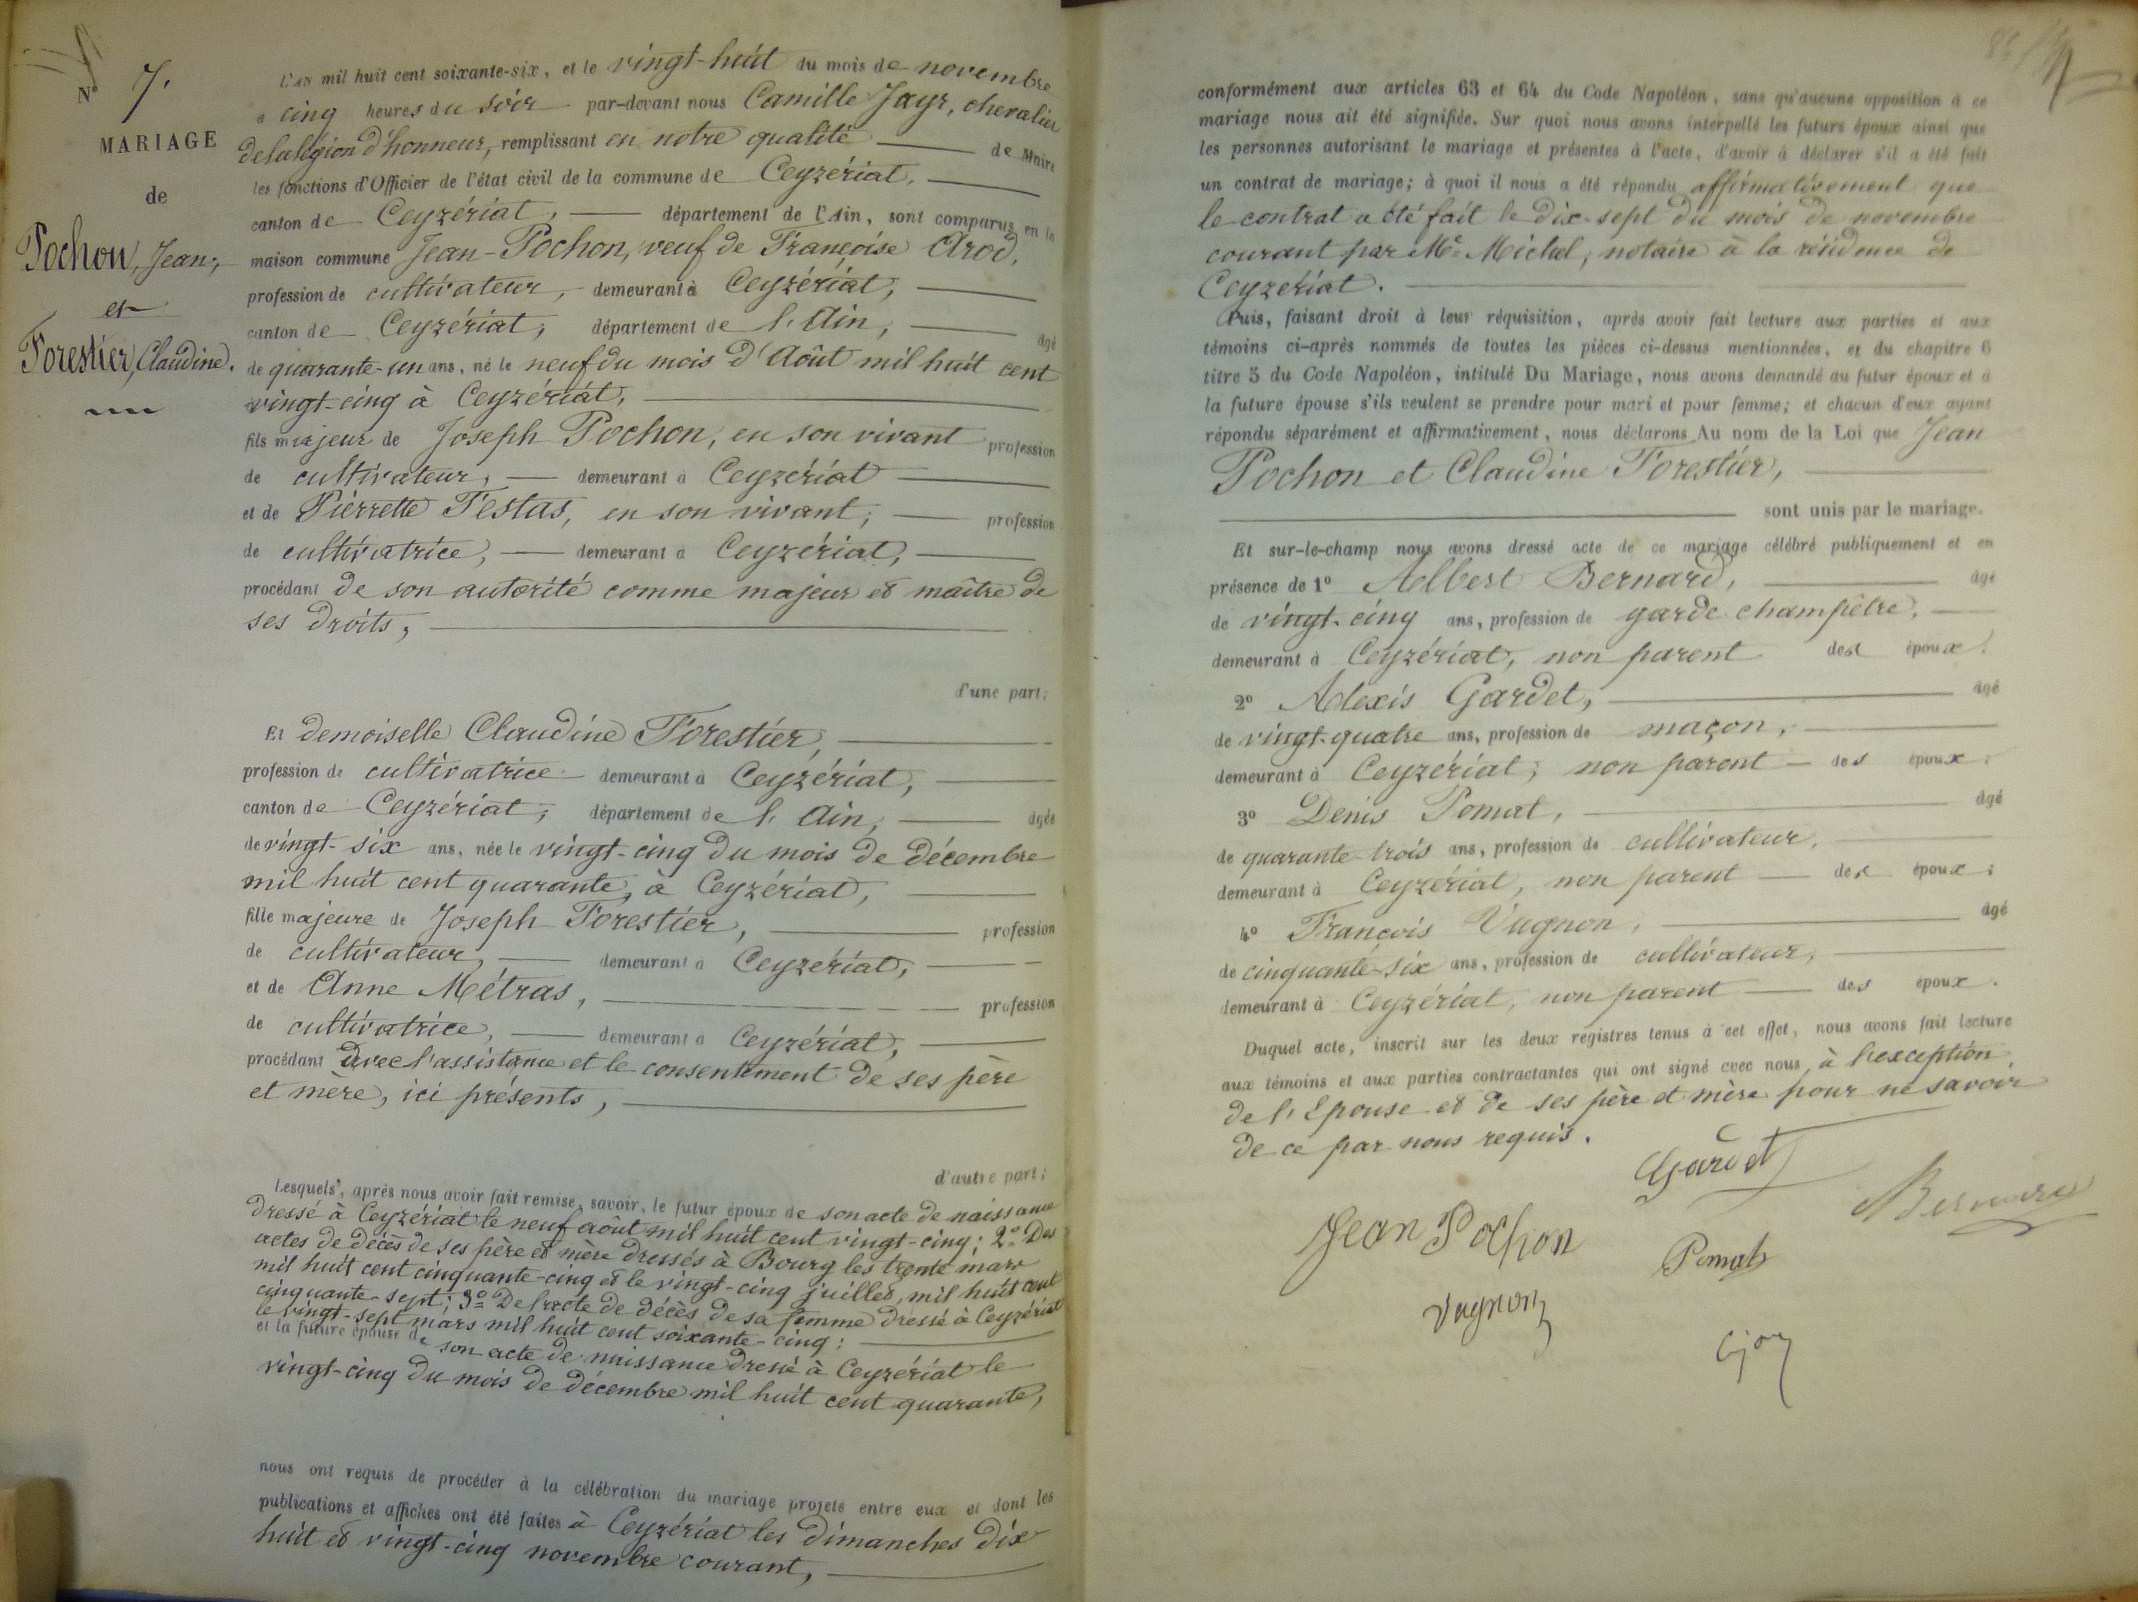 N° 7.
MARIAGE
de
Pochon, Jean,
et
Forestier, Claudine.
L'AN mil huit cent soixante-six, et le vingt-huit du mois de novembre
a cinq heures du soir par-devant nous Camille Jayr, chevalier
de la légion d'honneur, remplissant en notre qualité de Maire
les fonctions d'Officier de l'état civil de la commune de Ceyzériat,
canton de Ceyzériat, département de l'Ain, sont comparus en la
maison commune Jean Pochon, veuf de Françoise Arod,
profession de cultivateur, demeurant à Ceyzériat,
canton de Ceyzériat, département de l'Ain, âgé
de quarante-un ans, né le neuf du mois d'Août mil huit cent
vingt-cinq à Ceyzériat,
fils majeur de Joseph Pochon, en son vivant profession
de cultivateur, demeurant à Ceyzériat
et de Pierrette Testas, en son vivant, profession
de cultivatrice, demeurant à Ceyzériat,
procédant de son autorité comme majeur et maître de
ses droits,
d'une part;
Et demoiselle Claudine Forestier,
profession de cultivatrice demeurant à Ceyzériat,
canton de Ceyzériat, département de l'Ain, âgée
de vingt-six ans, née le vingt-cinq du mois de décembre
mil huit cent quarante, à Ceyzériat,
fille majeure de Joseph Forestier, profession
de cultivateur, demeurant à Ceyzériat,
et de Anne Métras, profession
de cultivatrice, demeurant à Ceyzériat,
procédant avec l'assistance et le consentement de ses père
et mère, ici présents,
d'autre part;
Lesquels, après nous avoir fait remise, savoir, le futur époux de son acte de naissance
dressé à Ceyzériat le neuf août mil huit cent vingt-cinq; 2° Des
actes de décès de ses père et mère dressés à Bourg les trente mars
mil huit cent cinquante-cinq et le vingt-cinq juillet, mil huit cent
cinquante-sept; 3° De l'acte de décès de sa femme dressé à Ceyzériat
le vingt-sept mars mil huit cent soixante-cinq:
et la future épouse de son acte de naissance dressé à Ceyzériat le
vingt-cinq du mois de décembre mil huit cent quarante,
nous ont requis de procéder à la célébration du mariage projeté entre eux et dont les
publications et affiches ont été faites à Ceyzériat les dimanches dix
huit et vingt-cinq novembre courant,
conformément aux articles 63 et 64 du Code Napoléon, sans qu'aucune opposition à ce
mariage nous ait été signifiée. Sur quoi nous avons interpellé les futurs époux ainsi que
les personnes autorisant le mariage et présentes à l'acte, d'avoir à déclarer s'il a été fait
un contrat de mariage; à quoi il nous a été répondu affirmativement que
le contrat a été fait le dix-sept du mois de novembre
courant par Me Michel, notaire à la résidence de
Ceyzériat.
Puis, faisant droit à leur réquisition, après avoir fait lecture aux parties et aux
témoins ci-après nommés de toutes les pièces ci-dessus mentionnées, et du chapitre 6
titre 5 du Code Napoléon, intitulé Du Mariage, nous avons demandé au futur époux et à
la future épouse s'ils veulent se prendre pour mari et pour femme; et chacun d'eux ayant
répondu séparément et affirmativement, nous déclarons Au nom de la Loi que Jean
Pochon et Claudine Forestier,
sont unis par le mariage.
Et sur-le-champ nous avons dressé acte de ce mariage célébré publiquement et en
présence de 1° Albert Bernard, âgé
de vingt-cinq ans, profession de garde champêtre,
demeurant à Ceyzériat, non parent des époux.
2° Alexis Gardet, âgé
de vingt-quatre ans, profession de maçon,
demeurant à Ceyzériat; non parent des époux;
3° Denis Pomat, âgé
de quarante trois ans, profession de cultivateur,
demeurant à Ceyzériat, non parent des époux;
4° François Vugnon, âgé
de cinquante-six ans, profession de cultivateur,
demeurant à Ceyzériat, non parent des époux.
Duquel acte, inscrit sur les deux registres tenus à cet effet, nous avons fait lecture
aux témoins et aux parties contractantes qui ont signé avec nous, à l'exception
de l'Epouse et de ses père et mère pour ne savoir
de ce par nous requis.
Gardet
Bernard
Jean Pochon
Pomat
Vugnon